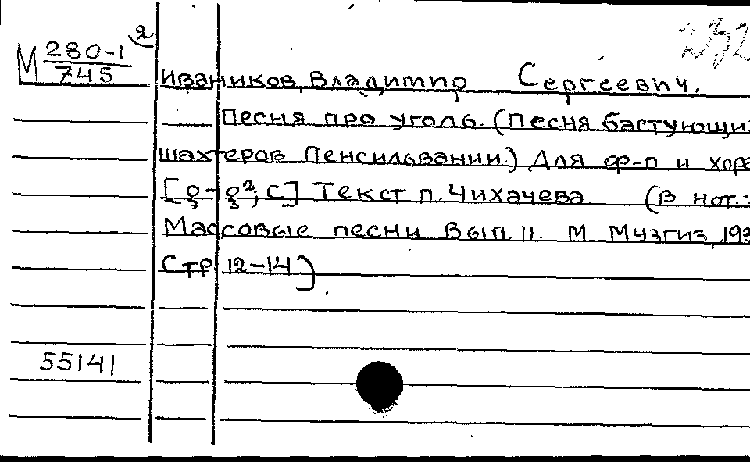 2
М 280-1
745
Иваников, Владимир Сергеевич.
Песня про уголь. (Песня бастующи
шахтеров Пенсильвании.) Для ф-п и хора
[g-g², c] Текст п. Чихачева (В нот.:
Массовые песни Вып. II М Музгиз, 193
Стр 12-14)
55141